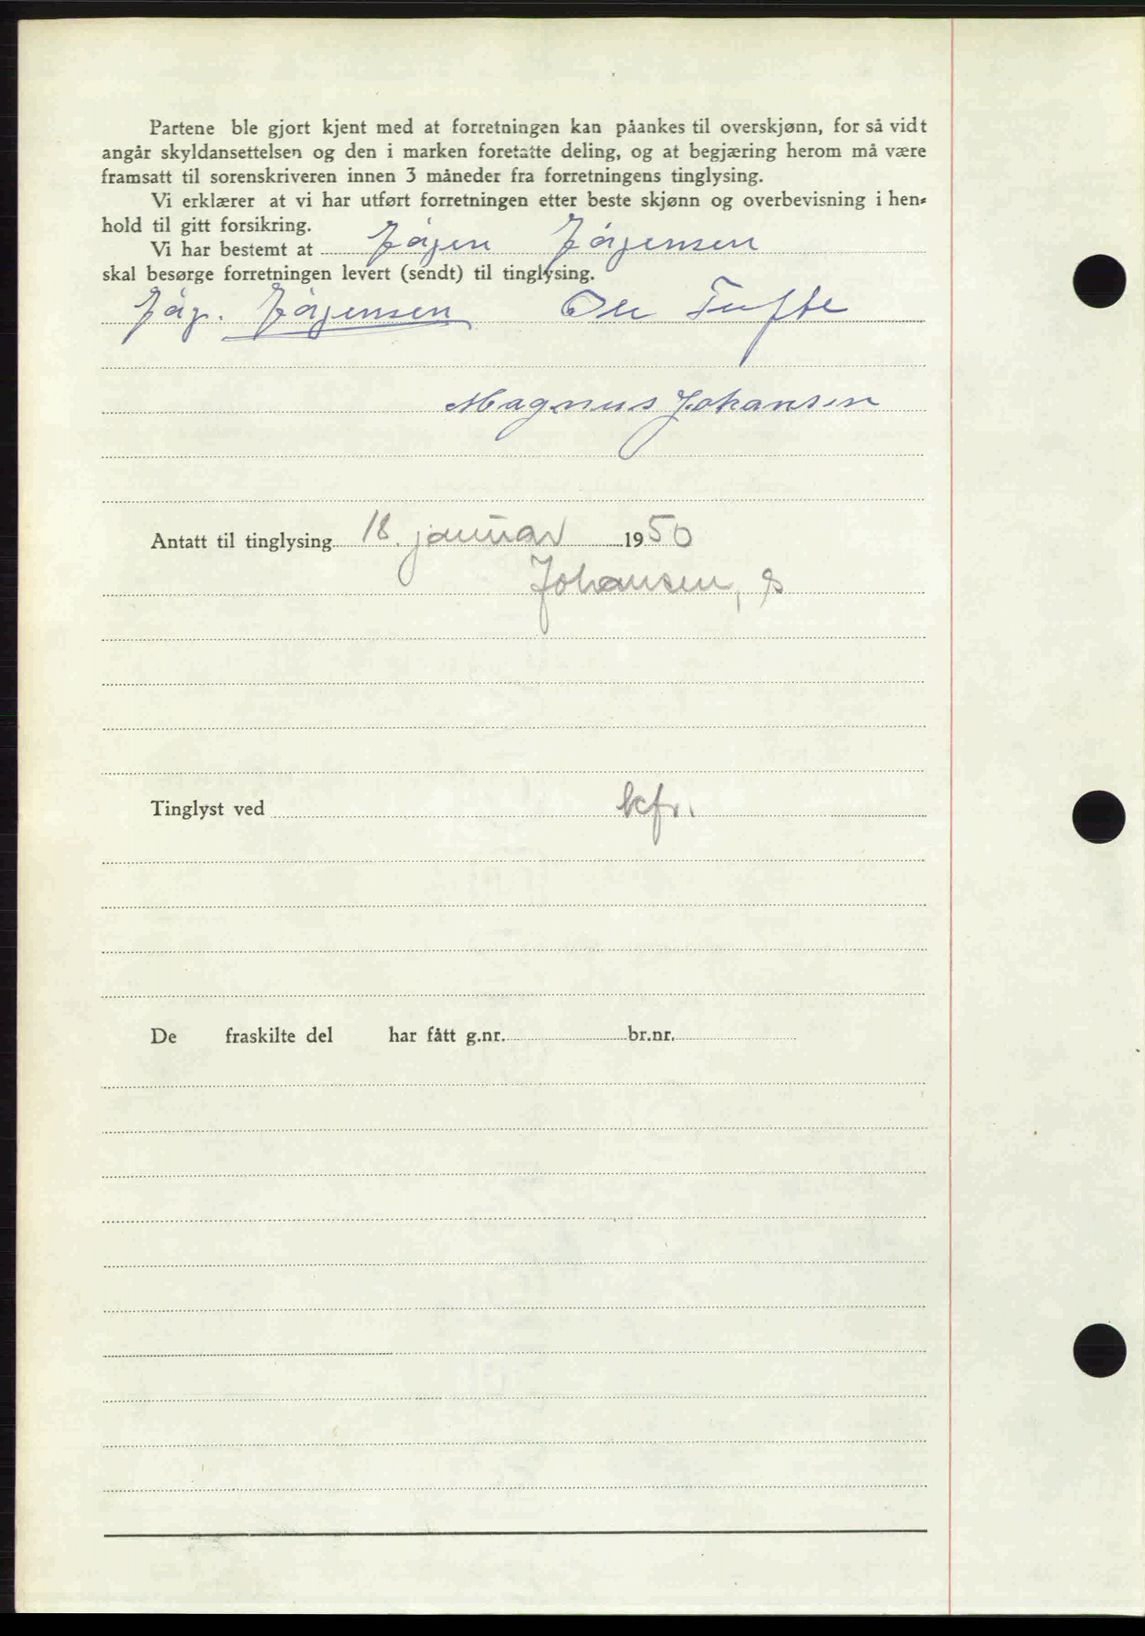 Partene ble gjort kjent med at forretningen kan påankes til overskjønn, for så vidt
angår skyldansettelsen og den i marken foretatte deling, og at begjæring herom må være
framsatt til sorenskriveren innen 3 måneder fra forretningens tinglysing.
Vi erklærer at vi har utført forretningen etter beste skjønn og overbevisning i hen-
hold til gitt forsikring.
Vi har bestemt at Jörgen Jörgensen
skal besørge forretningen levert (sendt) til tinglysing.
Jörg. Jörgensen Ole Tufte
Magnus Johansen
Antatt til tinglysing 18. januar 1950
Johansen, s
Tinglyst ved kfr.
De fraskilte del har fått g.nr. br.nr.